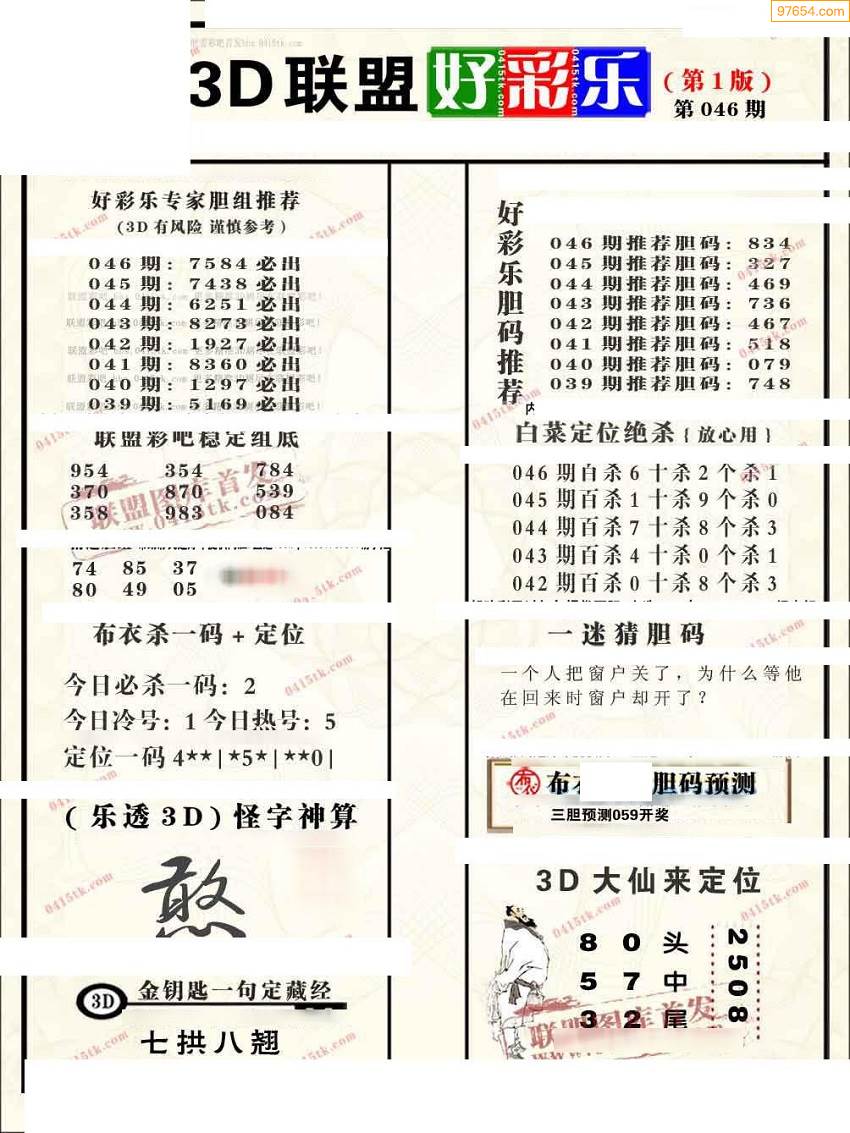 97654.com
3D联盟好彩乐
(第1版)
第046期
好彩乐专家胆组推荐
(3D有风险 谨慎参考)
046期：7584必出
045期：7438必出
044期：6251必出
043期：8273必出
042期：1927必出
041期：8360必出
040期：1297必出
039期：5169必出
联盟彩吧稳定组底
954 354 784
370 870 539
358 983 084
74 85 37
80 49 05
布衣杀一码+定位
今日必杀一码：2
今日冷号：1 今日热号：5
定位一码4**|*5*|**0|
(乐透3D)怪字神算
憨
3D 金钥匙一句定藏经
七拱八翘
好彩乐胆码推荐
046期推荐胆码：834
045期推荐胆码：327
044期推荐胆码：469
043期推荐胆码：736
042期推荐胆码：467
041期推荐胆码：518
040期推荐胆码：079
039期推荐胆码：748
白菜定位绝杀{放心用}
046期百杀6十杀2个杀1
045期百杀1十杀9个杀0
044期百杀7十杀8个杀3
043期百杀4十杀0个杀1
042期百杀0十杀8个杀3
一迷猜胆码
一个人把窗户关了，为什么等他
在回来时窗户却开了？
布衣 布 胆码预测
三胆预测059开奖
3D大仙来定位
8 0 头
5 7 中
3 2 尾
2508
联盟图库首发
www.0415tk.com
联盟图库首发
0415tk.com